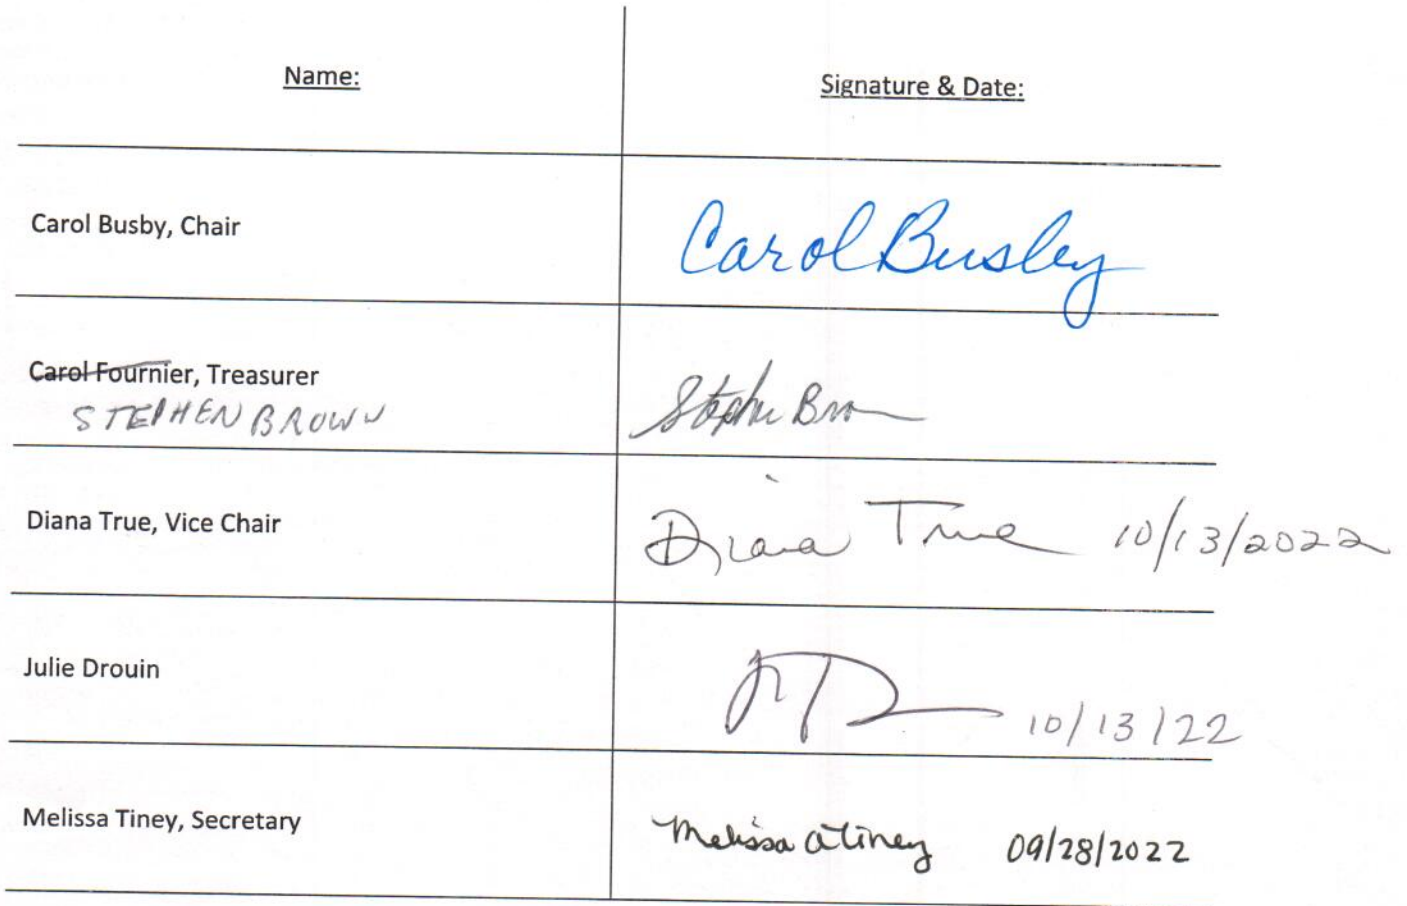 Name:
Signature & Date:
Carol Busby, Chair
Carol Busby
Carol Fournier, Treasurer
STEPHEN BROWN
Stephen Brown
Diana True, Vice Chair
Diana True 10/13/2022
Julie Drouin
JD 10/13/22
Melissa Tiney, Secretary
Melissa A Tiney 09/28/2022